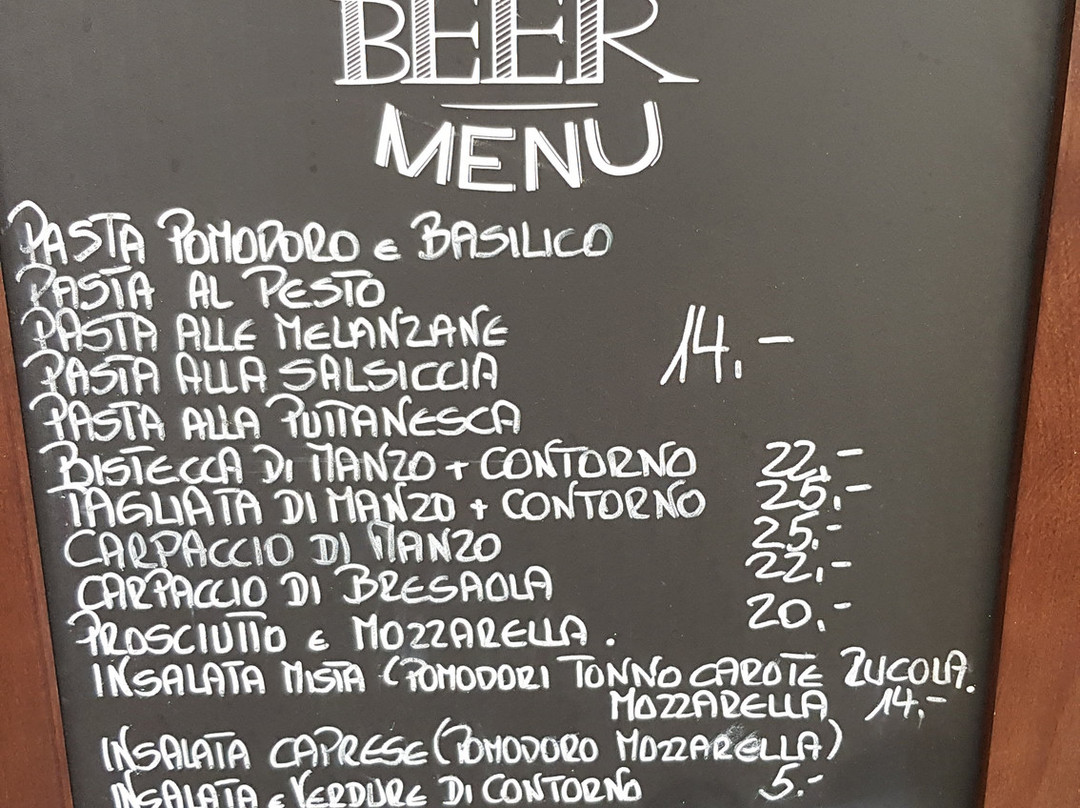 BEER
MENU
PASTA POMODORO e BASILICO
PASTA AL PESTO
PASTA ALLE MELANZANE
14.-
PASTA ALLA SALSICCIA
PASTA ALLA PUTTANESCA
BISTECCA DI MANZO + CONTORNO 22,-
TAGLIATA DI MANZO + CONTORNO 25,-
CARPACCIO DI MANZO 25,-
CARPACCIO DI BRESAOLA 22,-
PROSCIUTTO e MOZZARELLA. 20,-
INSALATA MISTA (POMODORI TONNO CAROTE RUCOLA.
MOZZARELLA 14,-
INSALATA CAPRESE (POMODORO MOZZARELLA)
INSALATA e VERDURE DI CONTORNO 5.-